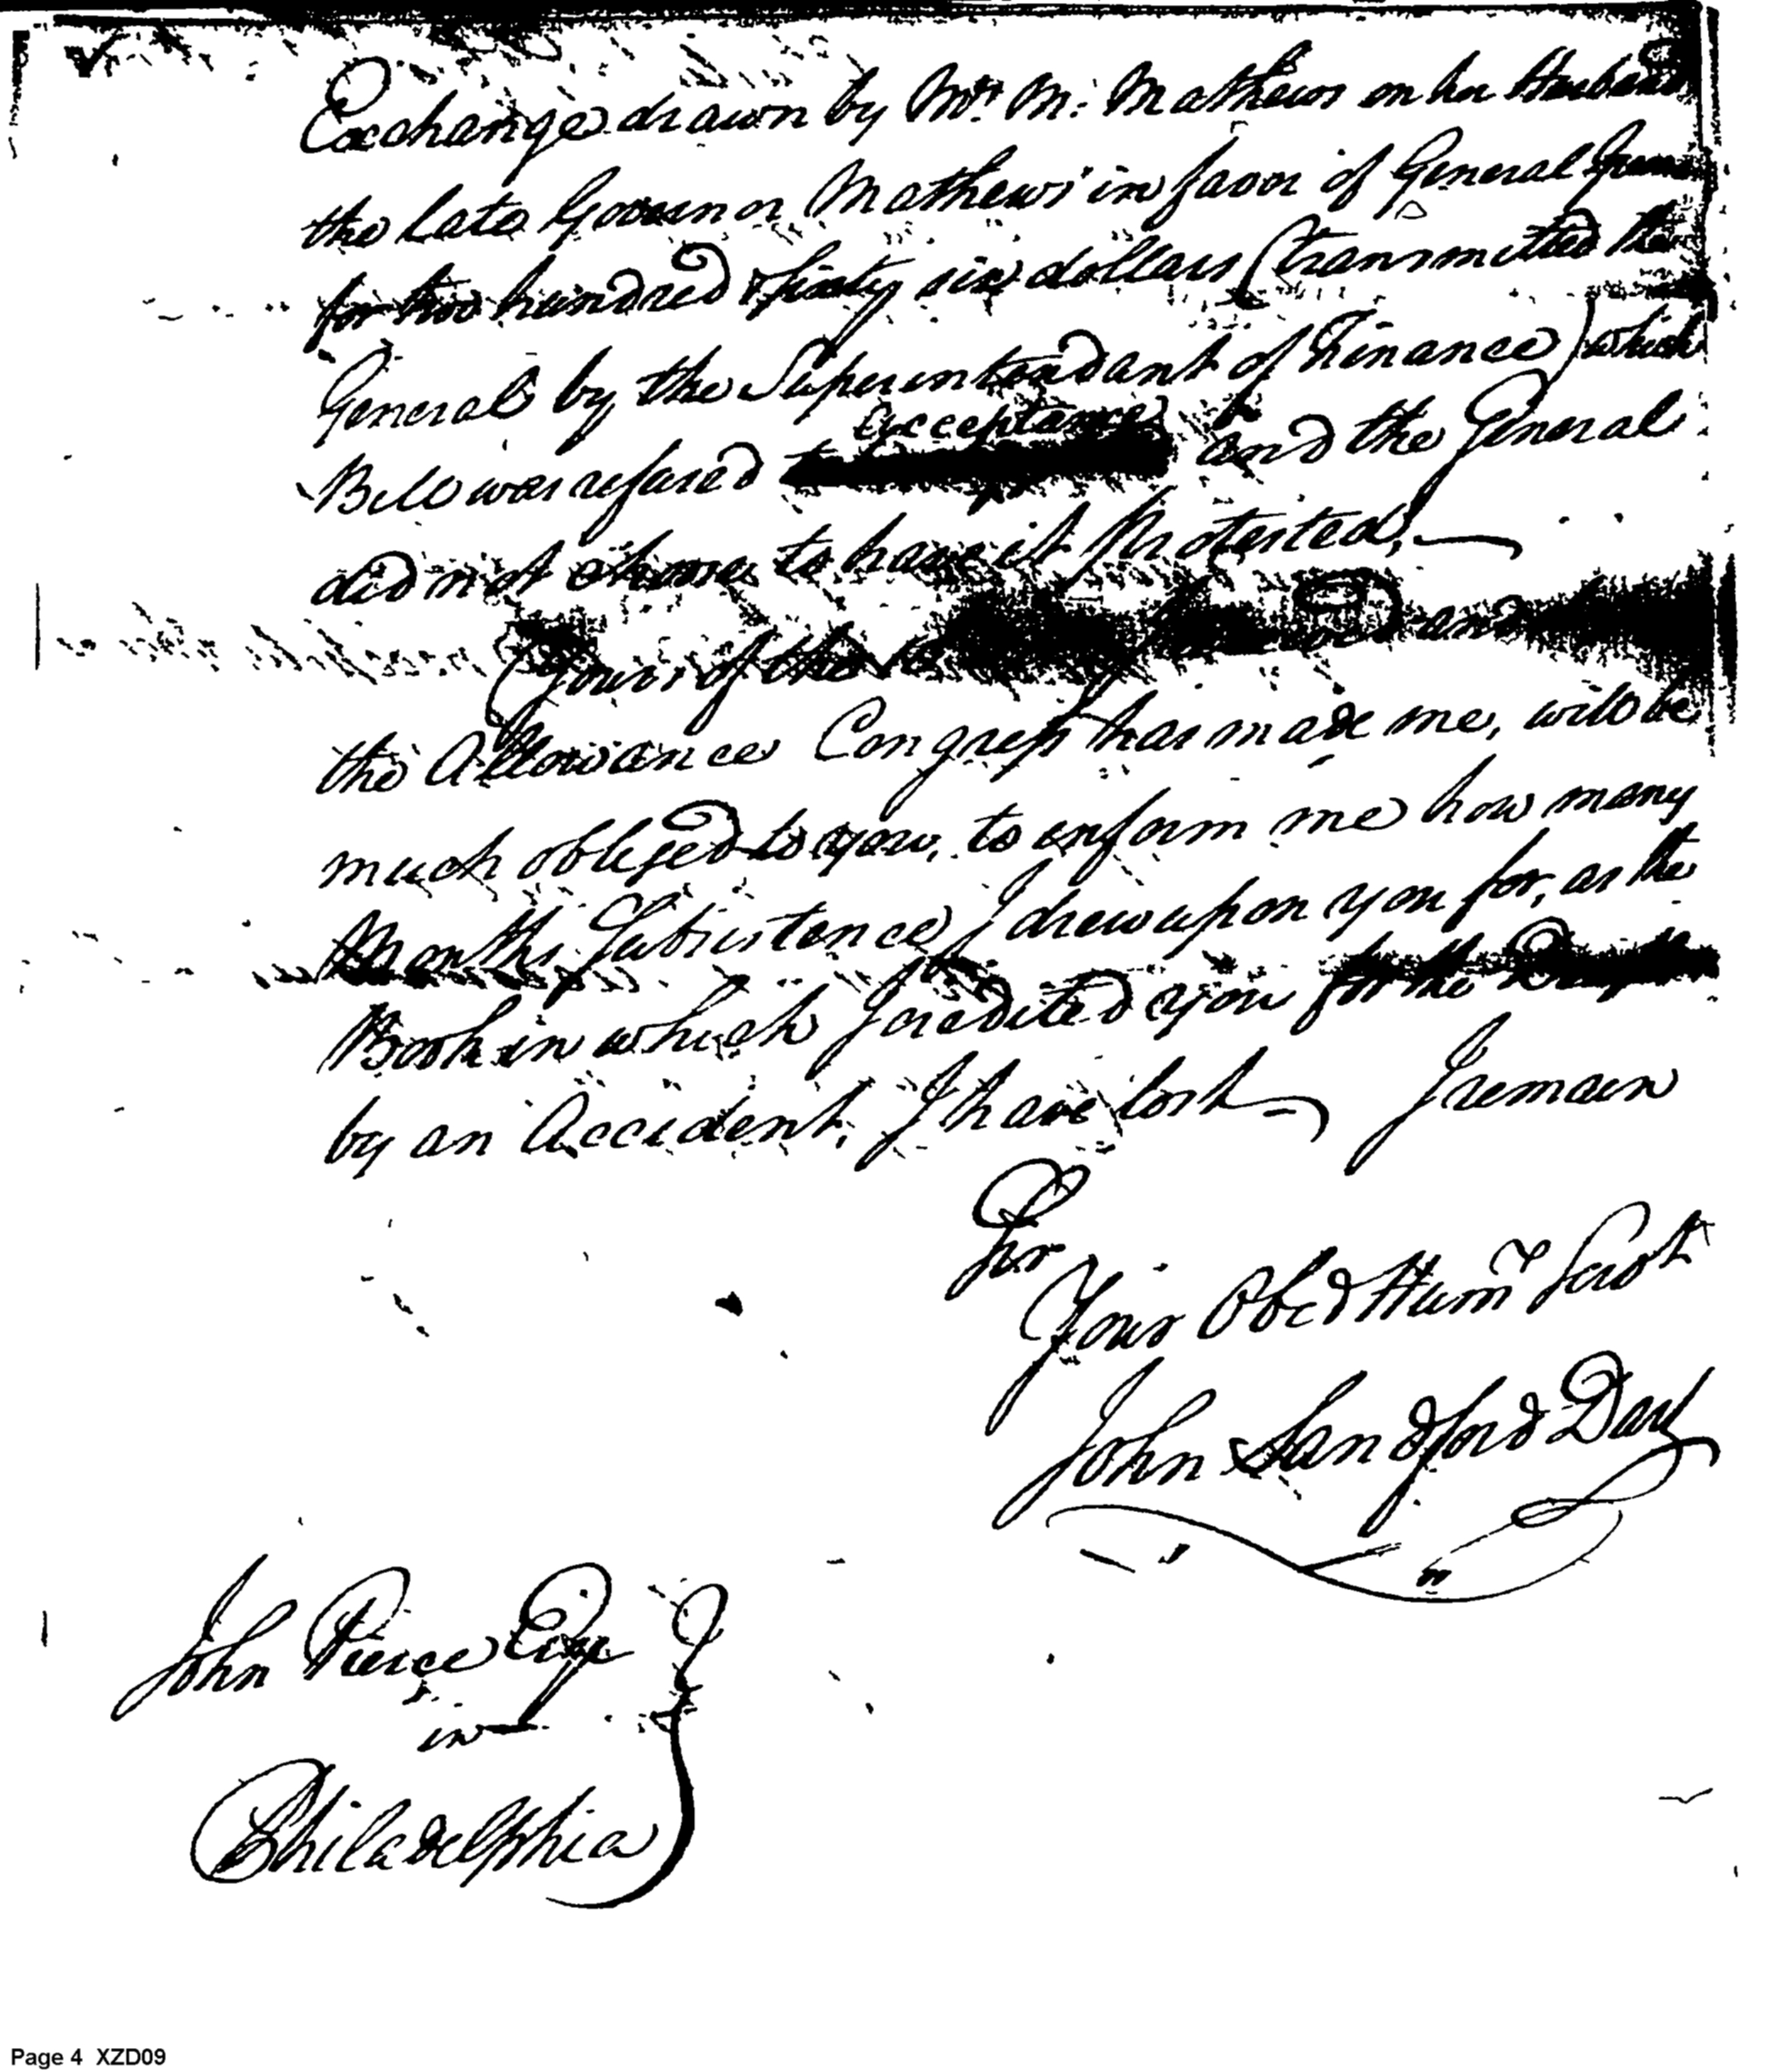 Exchange drawn by Mrs. M: Mathews on her Husband
the late Governor Mathews' in favor of General Greene
for two hundred & sixty six dollars (transmitted the
General by the Superintendant of Finance) which
acceptance
Bill was refused and the General
did not choose to have it Protested,
Yours of the and
the Allowance Congress has made me, will be
much obliged to you, to inform me how many
Months Subsistence, I drew upon you for, as the
Book in which I credited you for the
by an Accident, I have lost I remain
Sir
Your Obed Humr Servt
John Sandford Dart
John Pierce Esqr
in
Philadelphia
Page 4 XZD09